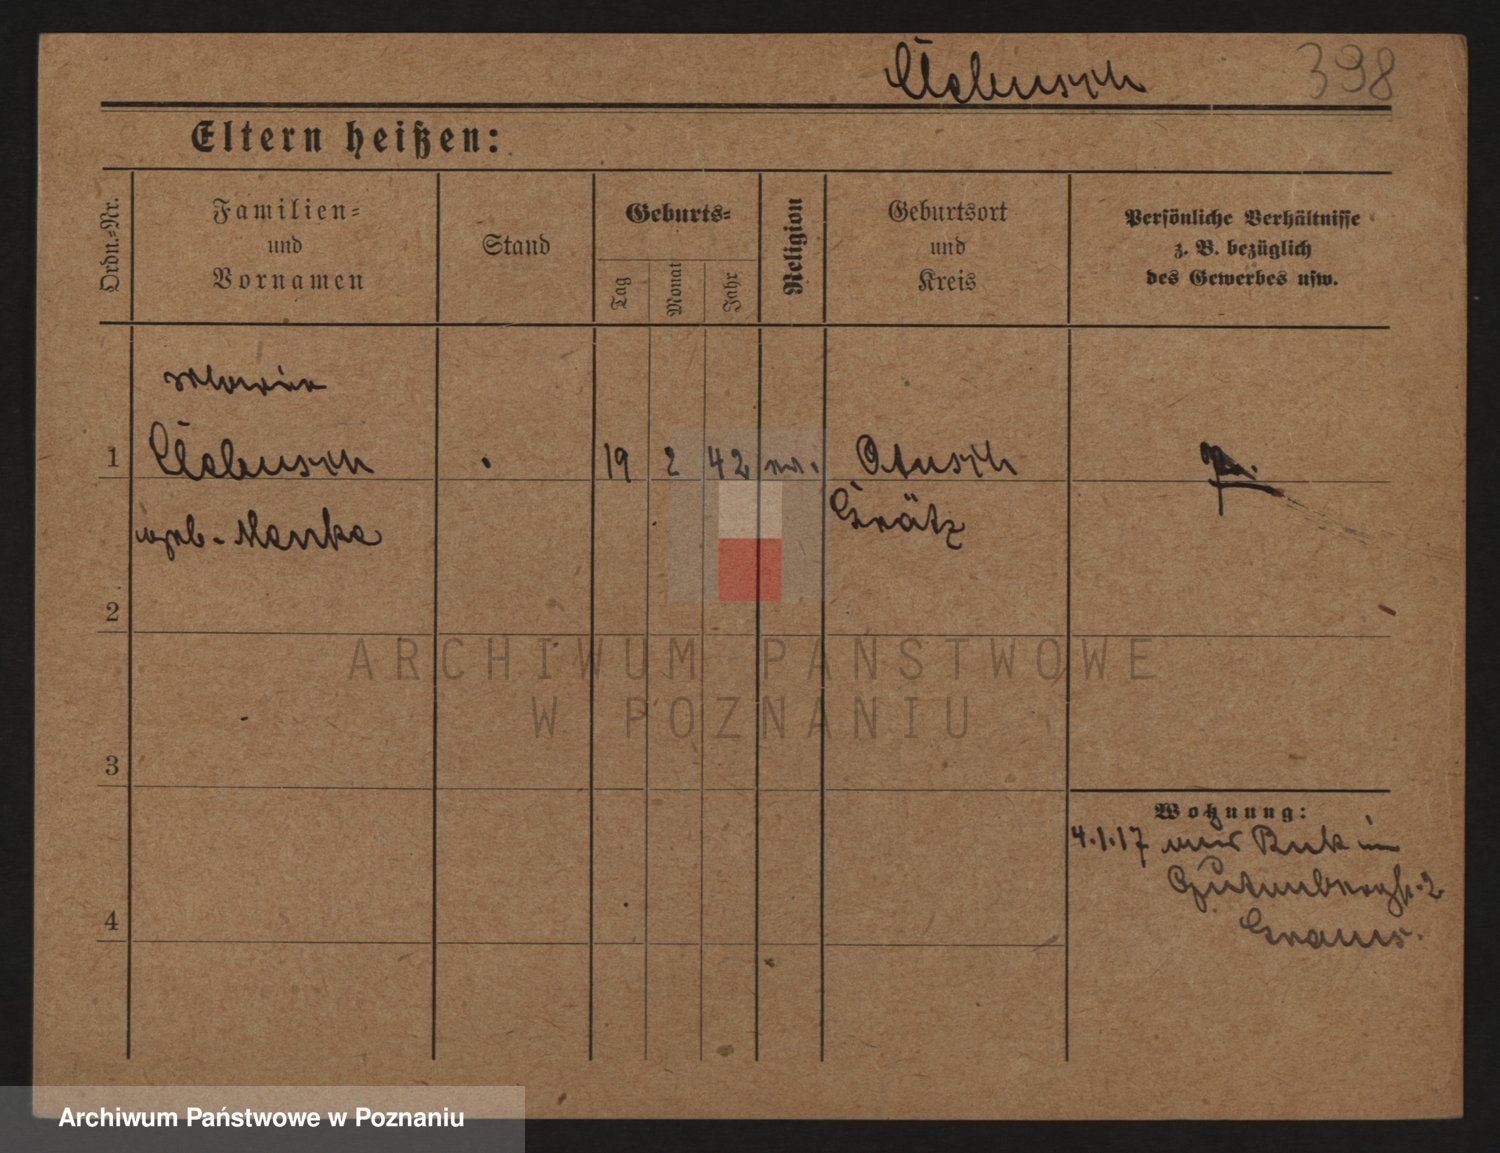 398
Eltern heißen:
Ordn.-Nr.
Familien-
und
Vornamen
Stand
Geburts-
Tag
Monat
Jahr
Religion
Geburtsort
und
Kreis
Persönliche Verhältnisse
z. B. bezüglich
des Gewerbes usw.
Maria
1 19 2 42
Grätz
geb. Manka
2
ARCHIWUM PAŃSTWOWE
W POZNANIU
3
Wohnung:
4.1.17 aus Buk in
Gutenbergstr. 2
4
Archiwum Państwowe w Poznaniu